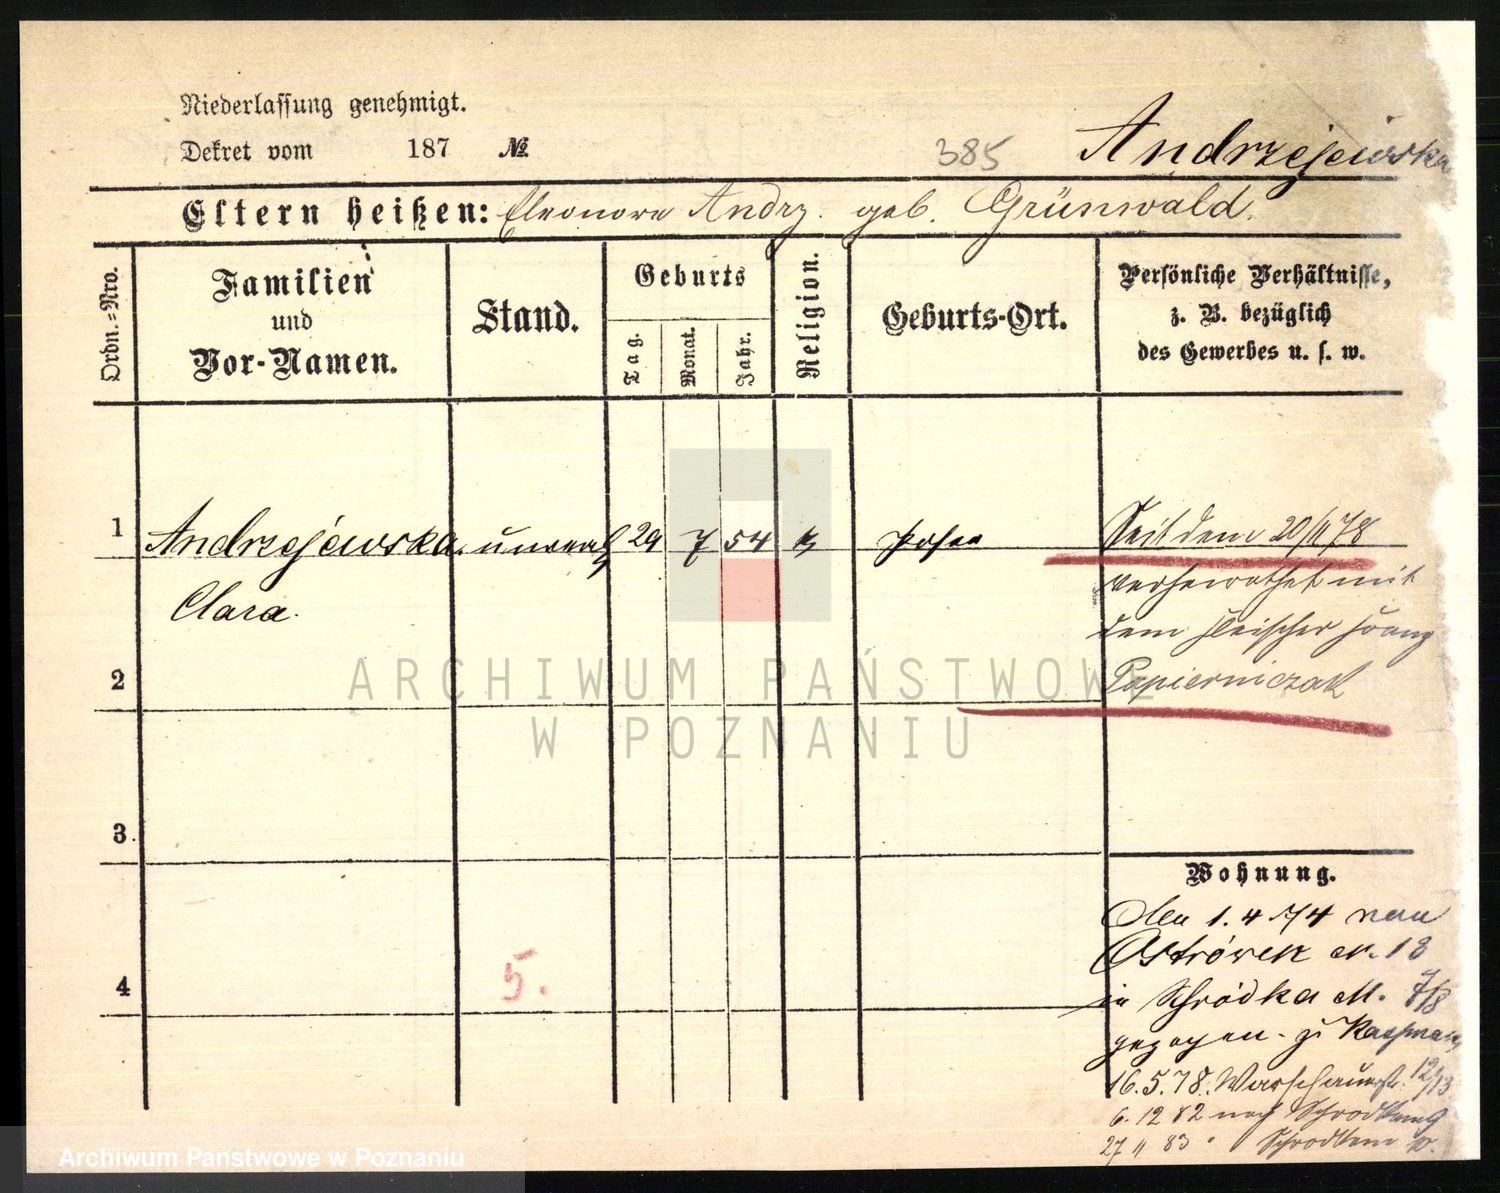 Niederlassung genehmigt.
Dekret vom 187 №
385
Andrzejewska
Eltern heißen: Eleonore Andrz. geb. Grünwald.
Ordn.=Nro.
Familien
und
Vor-Namen.
Stand.
Geburts
Tag.
Monat.
Jahr.
Religion.
Geburts-Ort.
Persönliche Verhältnisse,
z. B. bezüglich
des Gewerbes u. s. w.
1 Andrzejewska unvereh 29 7 54 k Posen
Clara.
Seit dem 20/11 78
verheirathet mit
dem Fleischer Franz
Papierniczak
2
3.
4
5.
Wohnung.
Den 1. 4 74 von
Ostrówek N. 13
in Schrodka N. 7/8
gezogen. zu
16.5.78. Warschauerstr. 12/13
6. 12 82 nach Schrodkamg
27 11 83 " Schrodkam
ARCHIWUM PAŃSTWOWE
W POZNANIU
Archiwum Państwowe w Poznaniu